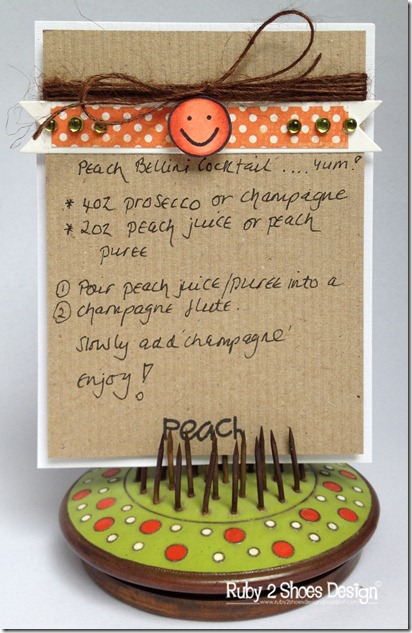 Peach Bellini Cocktail ....yum!
* 4oz prosecco or champagne
* 2oz peach juice or peach
puree
① Pour peach juice/puree into a
② champagne flute.
Slowly add 'champagne'
Enjoy!
Peach
Ruby 2 Shoes Design©